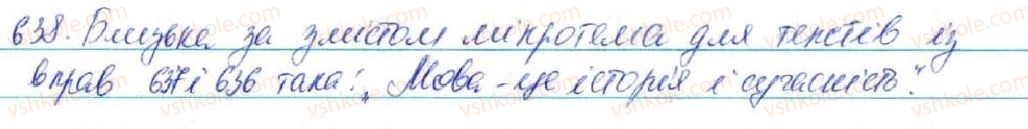 638. Близька за змістом мікротема для текстів із
вправ 637 і 636 така: „Мова – це історія і сучасність".